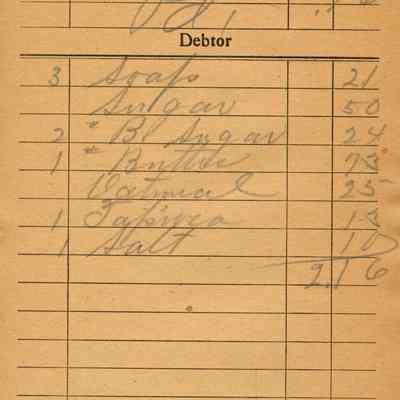 Debtor
3 Soap 21
Sugar 50
2 " Br Sugar 24
1 " Butter 73
Oatmeal 25
1 Tapioca 13
1 Salt 10
2.16